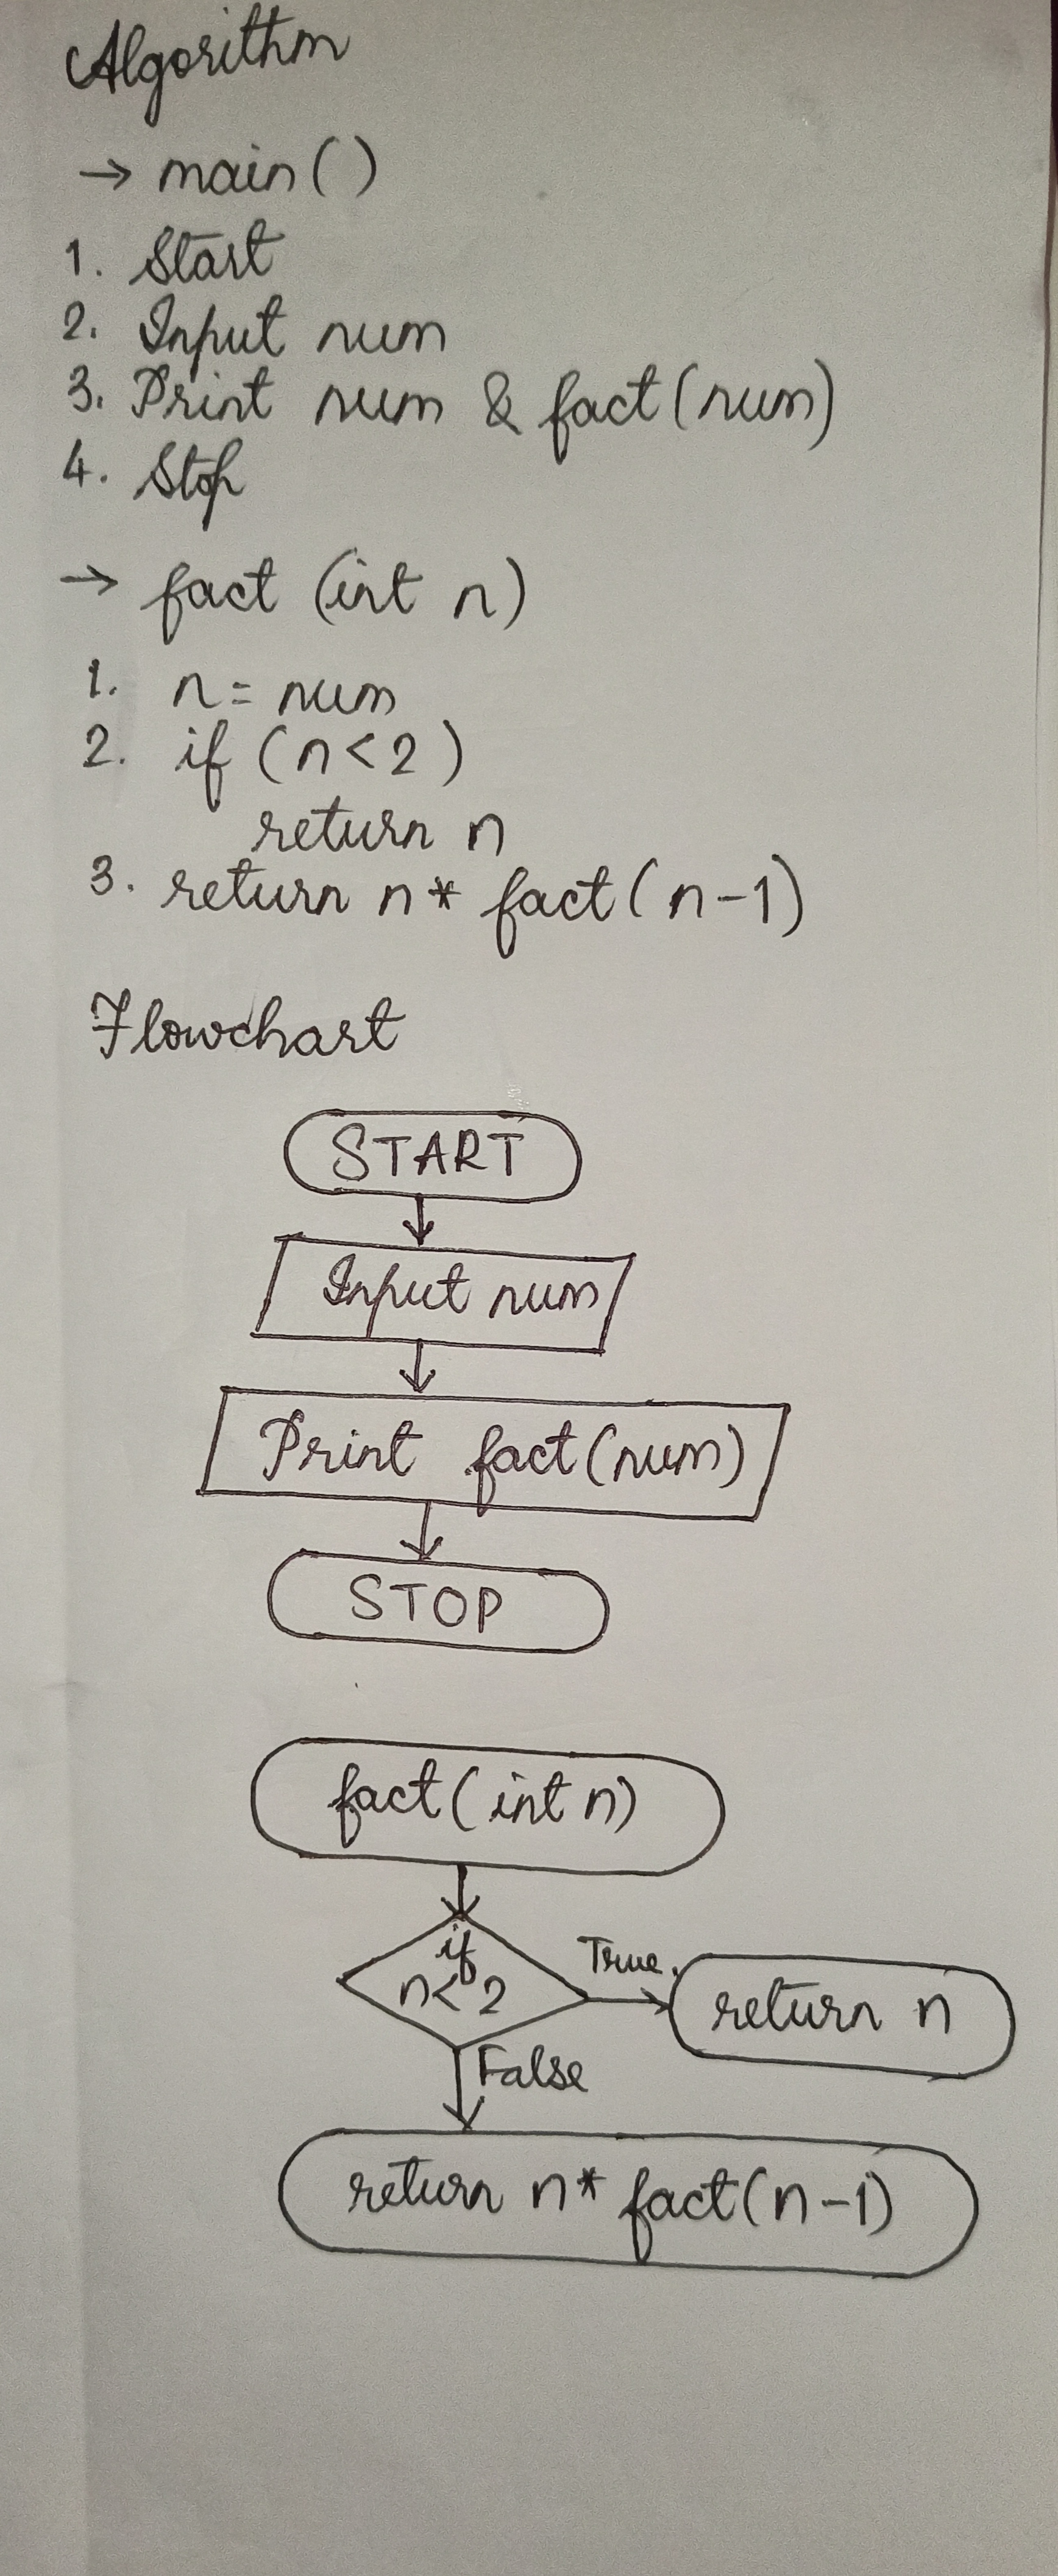 Algorithm
→ main()
1. Start
2. Input num
3. Print num & fact(num)
4. Stop
→ fact (int n)
1. n = num
2. if (n<2)
return n
3. return n* fact(n-1)
Flowchart
START
Input num
Print fact(num)
STOP
fact(int n)
if
n<2
True
return n
False
return n* fact(n-1)